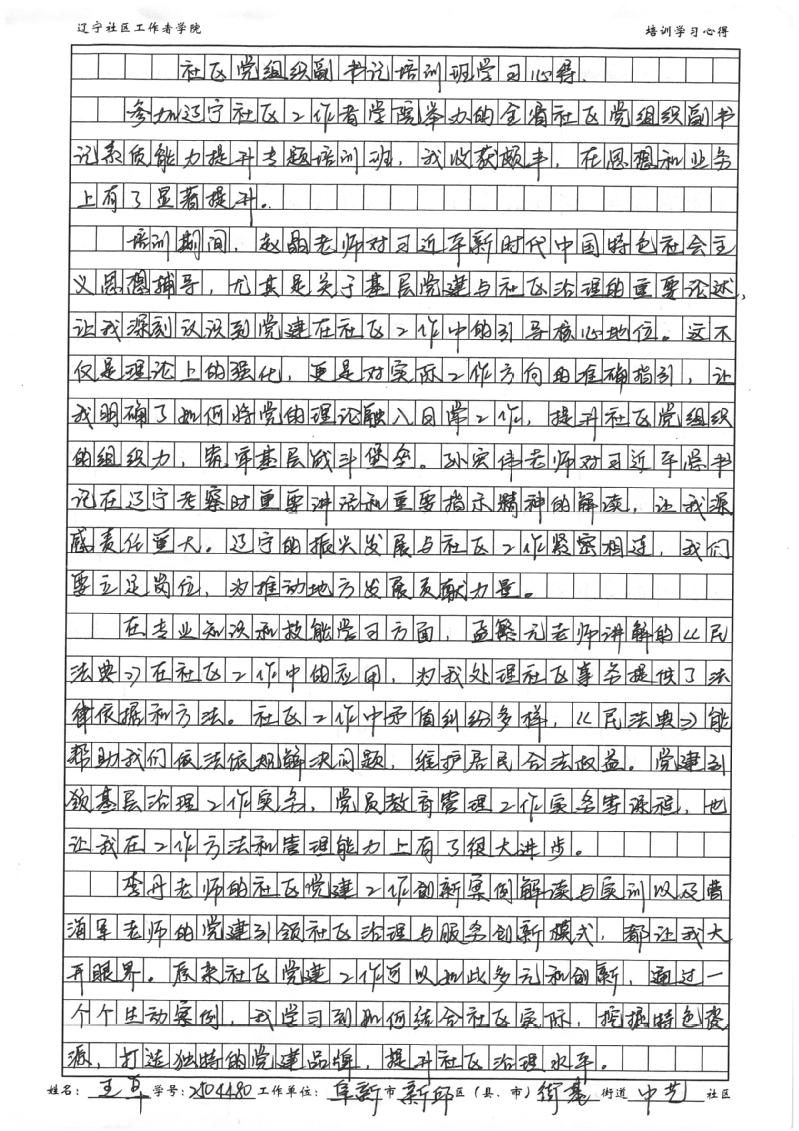 辽宁社区工作者学院 培训学习心得
社区党组织副书记培训班学习心得.
参加辽宁社区工作者学院举办的全省社区党组织副书
记素质能力提升专题培训班，我收获颇丰，在思想和业务
上有了显著提升。
培训期间，赵晶老师对习近平新时代中国特色社会主
义思想辅导，尤其是关于基层党建与社区治理的重要论述，
让我深刻认识到党建在社区工作中的引导核心地位。这不
仅是理论上的强化，更是对实际工作方向的准确指引，让
我明确了如何将党的理论融入日常工作，提升社区党组织
的组织力，筑牢基层战斗堡垒。孙宏伟老师对习近平总书
记在辽宁考察时重要讲话和重要指示精神的解读，让我深
感责任重大。辽宁的振兴发展与社区工作紧密相连，我们
要立足岗位，为推动地方发展贡献力量。
在专业知识和技能学习方面，孟繁元老师讲解的《民
法典》在社区工作中的应用，为我处理社区事务提供了法
律依据和方法。社区工作中矛盾纠纷多样，《民法典》能
帮助我们依法依规解决问题，维护居民合法权益。党建引
领基层治理工作实务，党员教育管理工作实务等课程，也
让我在工作方法和管理能力上有了很大进步。
李丹老师的社区党建工作创新案例解读与实训以及曹
海军老师的党建引领社区治理与服务创新模式，都让我大
开眼界。原来社区党建工作可以如此多元和创新，通过一
个个生动案例，我学习到如何结合社区实际，挖掘特色资
源，打造独特的党建品牌，提升社区治理水平。
姓名：王卓 学号：2504480 工作单位：阜新市新邱区（县、市）街基街道中艺社区